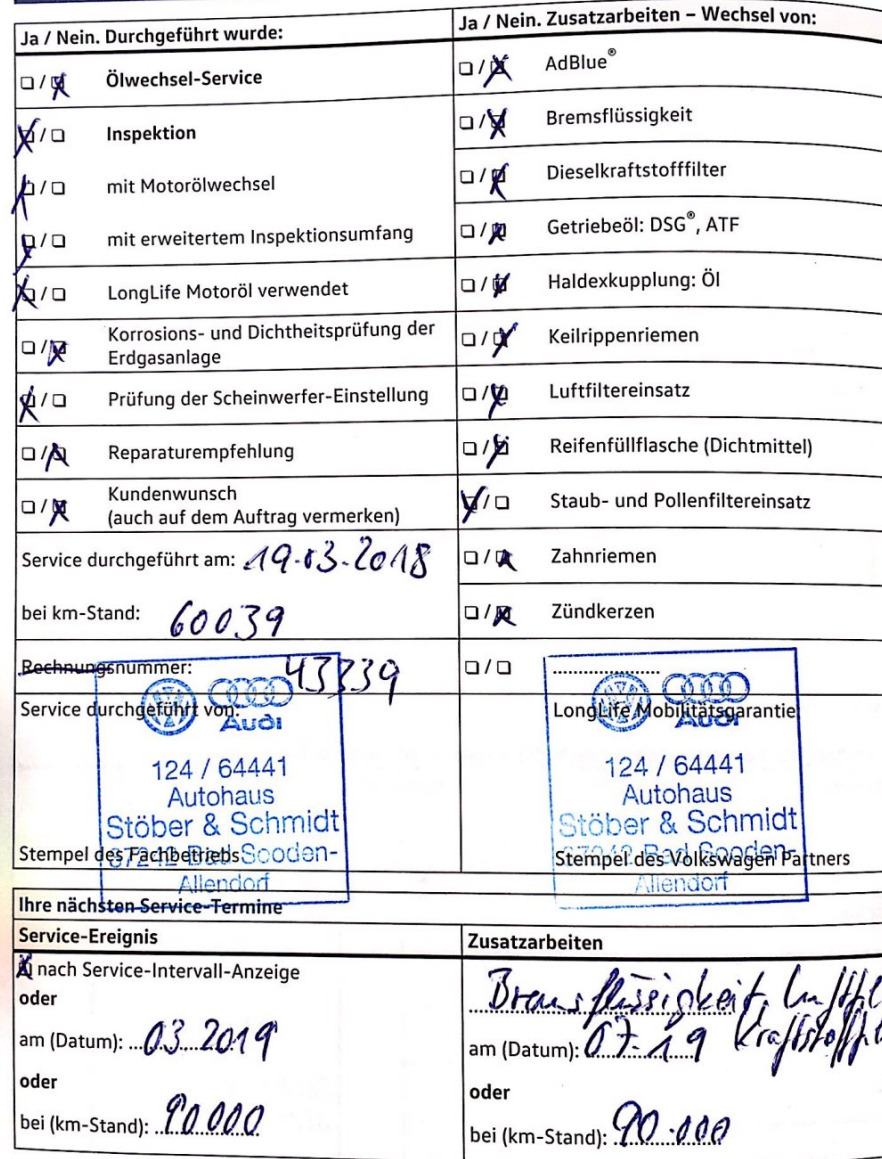 Ja / Nein. Durchgeführt wurde:
☐ / ☒ Ölwechsel-Service
☒ / ☐ Inspektion
☒ / ☐ mit Motorölwechsel
☒ / ☐ mit erweitertem Inspektionsumfang
☒ / ☐ LongLife Motoröl verwendet
☐ / ☒ Korrosions- und Dichtheitsprüfung der
Erdgasanlage
☒ / ☐ Prüfung der Scheinwerfer-Einstellung
☐ / ☒ Reparaturempfehlung
☐ / ☒ Kundenwunsch
(auch auf dem Auftrag vermerken)
Service durchgeführt am: 19.03.2018
bei km-Stand: 60039
Rechnungsnummer: 43339
Service durchgeführt von:
Audi
124 / 64441
Autohaus
Stöber & Schmidt
37242 Bad Sooden-
Allendorf
Stempel des Fachbetriebs
Ja / Nein. Zusatzarbeiten – Wechsel von:
☐ / ☒ AdBlue®
☐ / ☒ Bremsflüssigkeit
☐ / ☒ Dieselkraftstofffilter
☐ / ☒ Getriebeöl: DSG®, ATF
☐ / ☒ Haldexkupplung: Öl
☐ / ☒ Keilrippenriemen
☐ / ☒ Luftfiltereinsatz
☐ / ☒ Reifenfüllflasche (Dichtmittel)
☒ / ☐ Staub- und Pollenfiltereinsatz
☐ / ☒ Zahnriemen
☐ / ☒ Zündkerzen
☐ / ☐ ....................
LongLife Mobilitätsgarantie
Audi
124 / 64441
Autohaus
Stöber & Schmidt
37242 Bad Sooden-
Allendorf
Stempel des Volkswagen Partners
Ihre nächsten Service-Termine
Service-Ereignis
☒ nach Service-Intervall-Anzeige
oder
am (Datum): 03.2019
oder
bei (km-Stand): 90.000
Zusatzarbeiten
Bremsflüssigkeit,
am (Datum): 07.19
oder
bei (km-Stand): 90.000